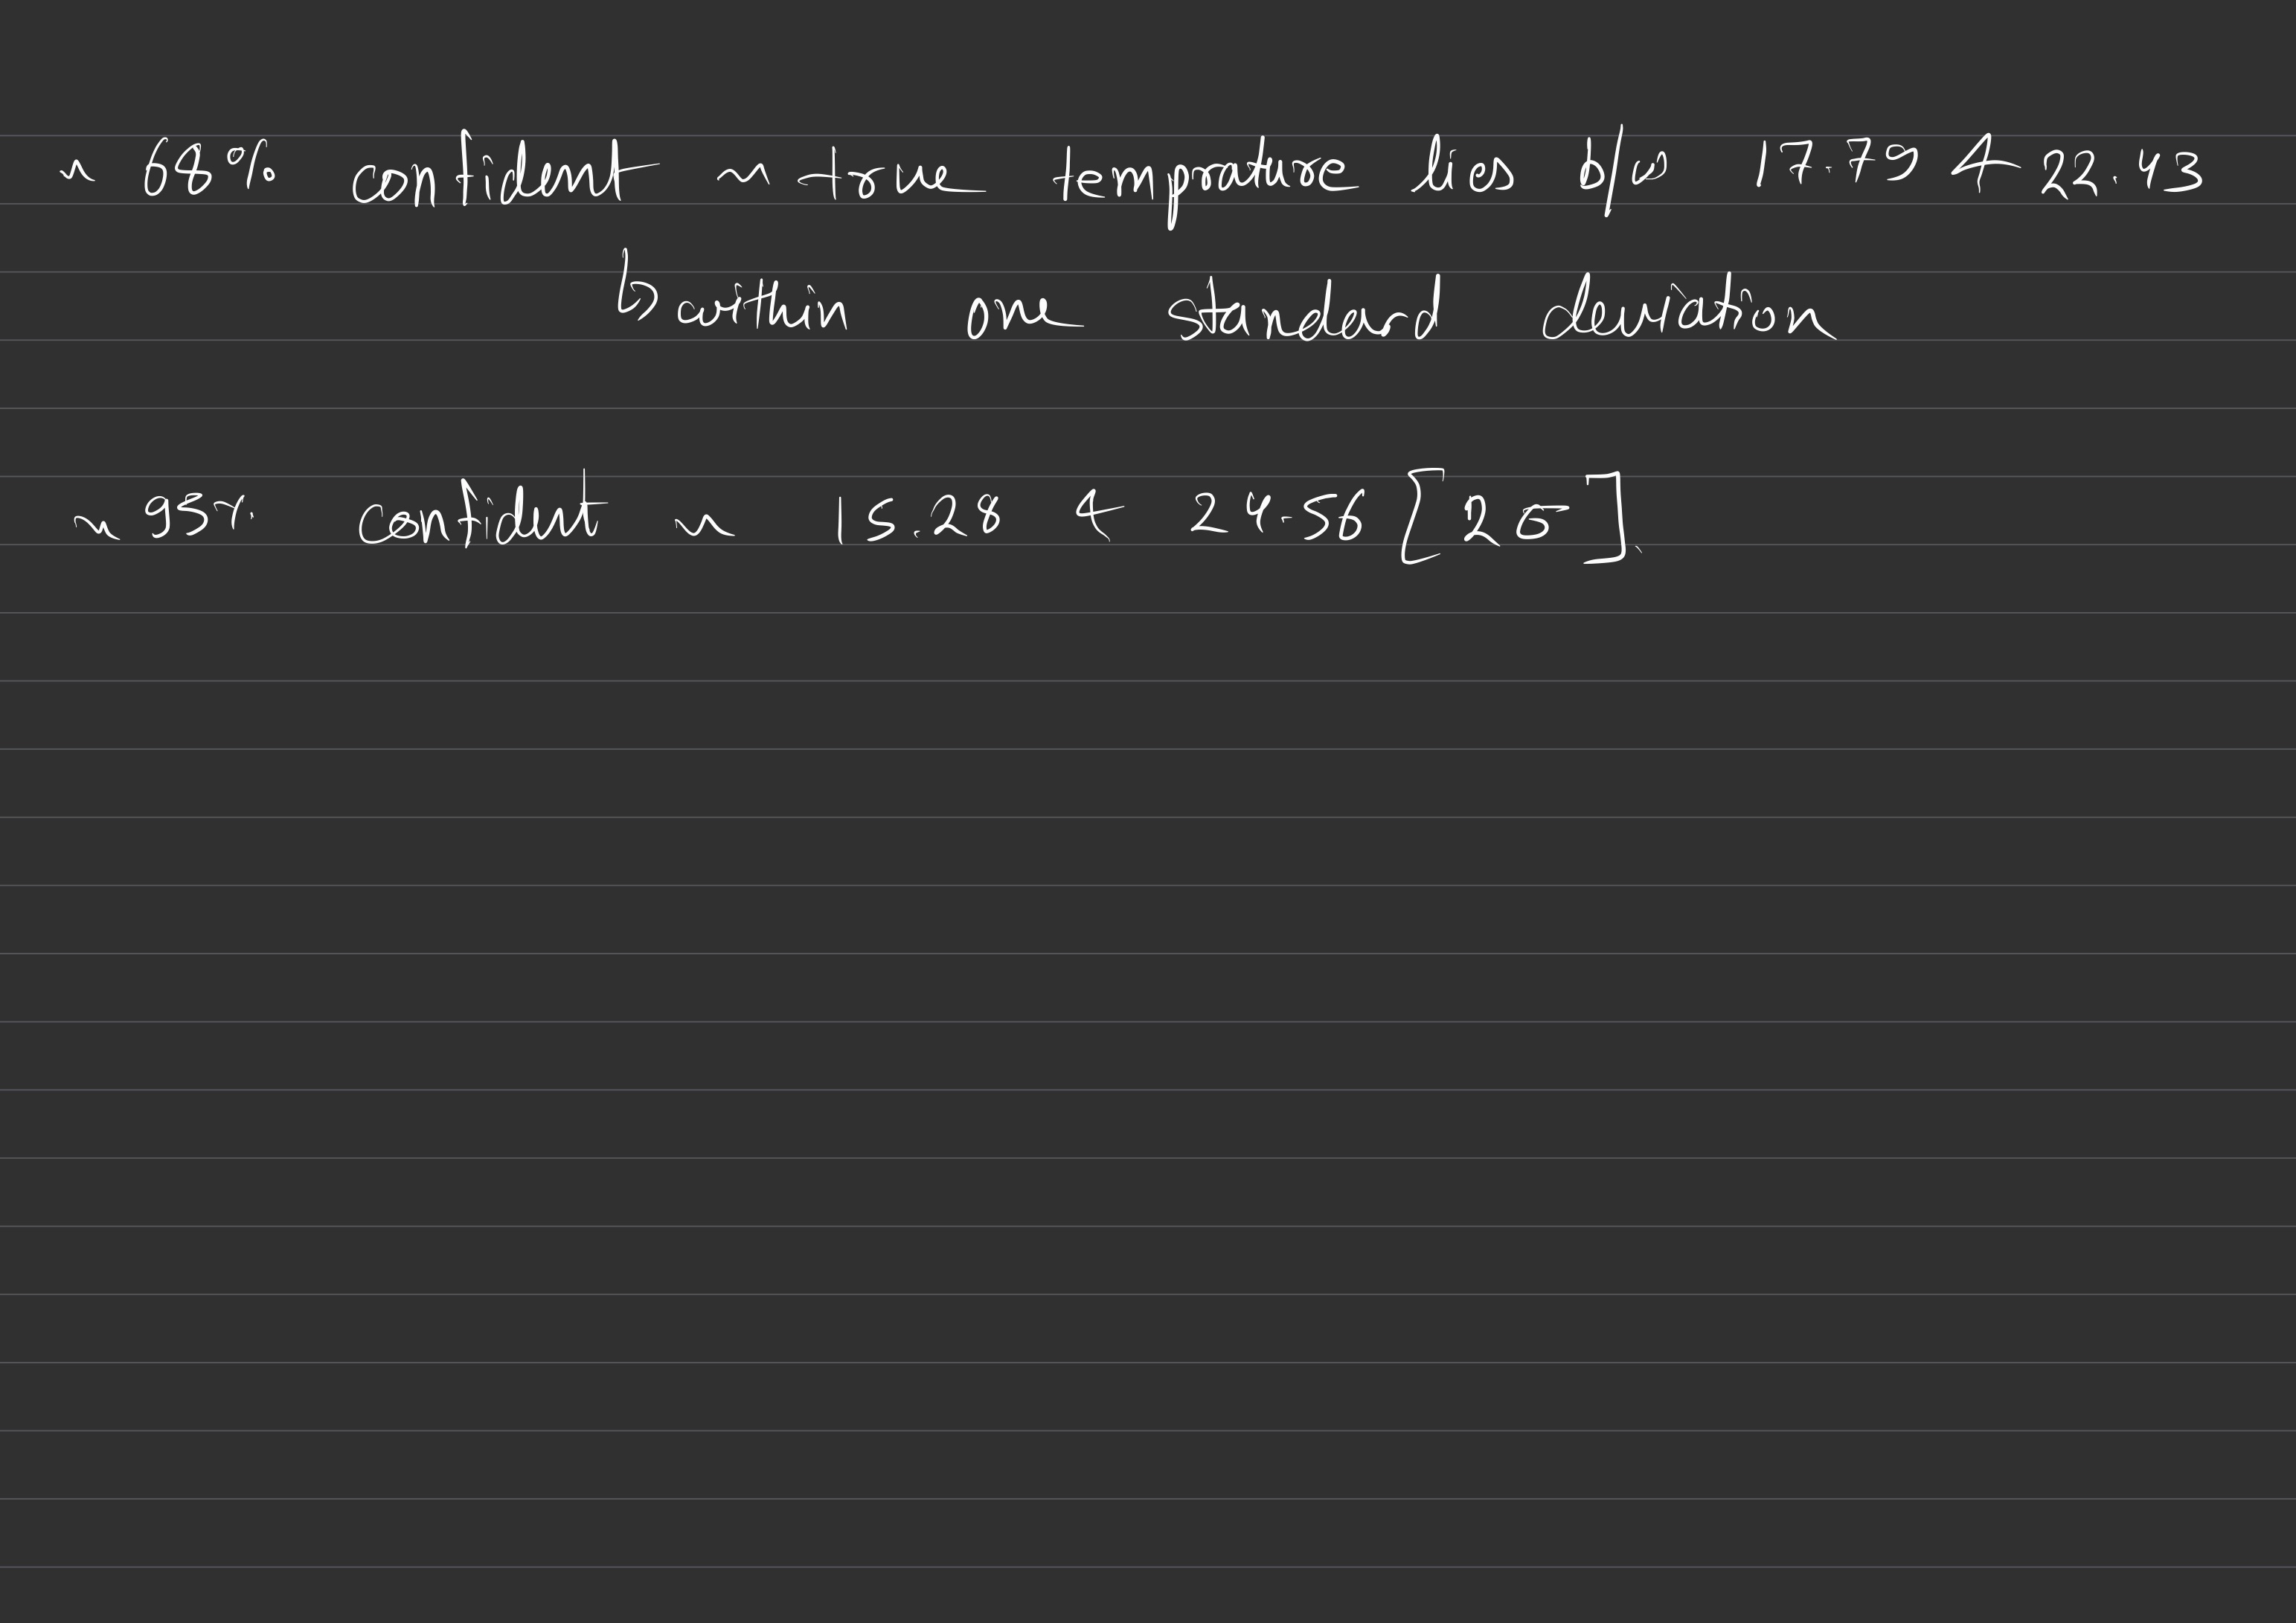 ~ 68% confident ~ true temperature lies b/w 17.79 & 22.43
↳ within one standard deviation
~ 95% confident ~ 15.28 & 24.56 [2σ].